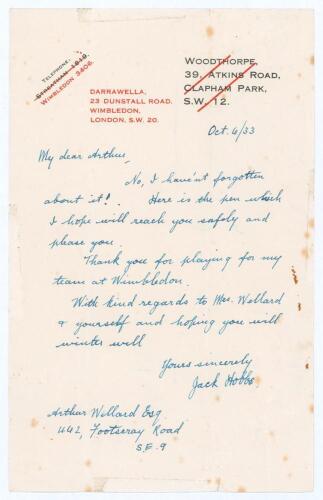 TELEPHONE:
STREATHAM 1619.
WIMBLEDON 3406.
WOODTHORPE,
39, ATKINS ROAD,
CLAPHAM PARK,
S.W. 12.
DARRAWELLA,
23 DUNSTALL ROAD.
WIMBLEDON,
LONDON, S.W. 20.
Oct. 4/33
My dear Arthur,
No, I have'nt forgotten
about it! Here is the pen which
I hope will reach you safely and
please you.
Thank you for playing for my
team at Wimbledon.
With kind regards to Mrs. Wellard
& yourself and hoping you will
winter well
Yours sincerely
Jack Hobbs.
Arthur Wellard Esq
442, Footscray Road
S.E. 9